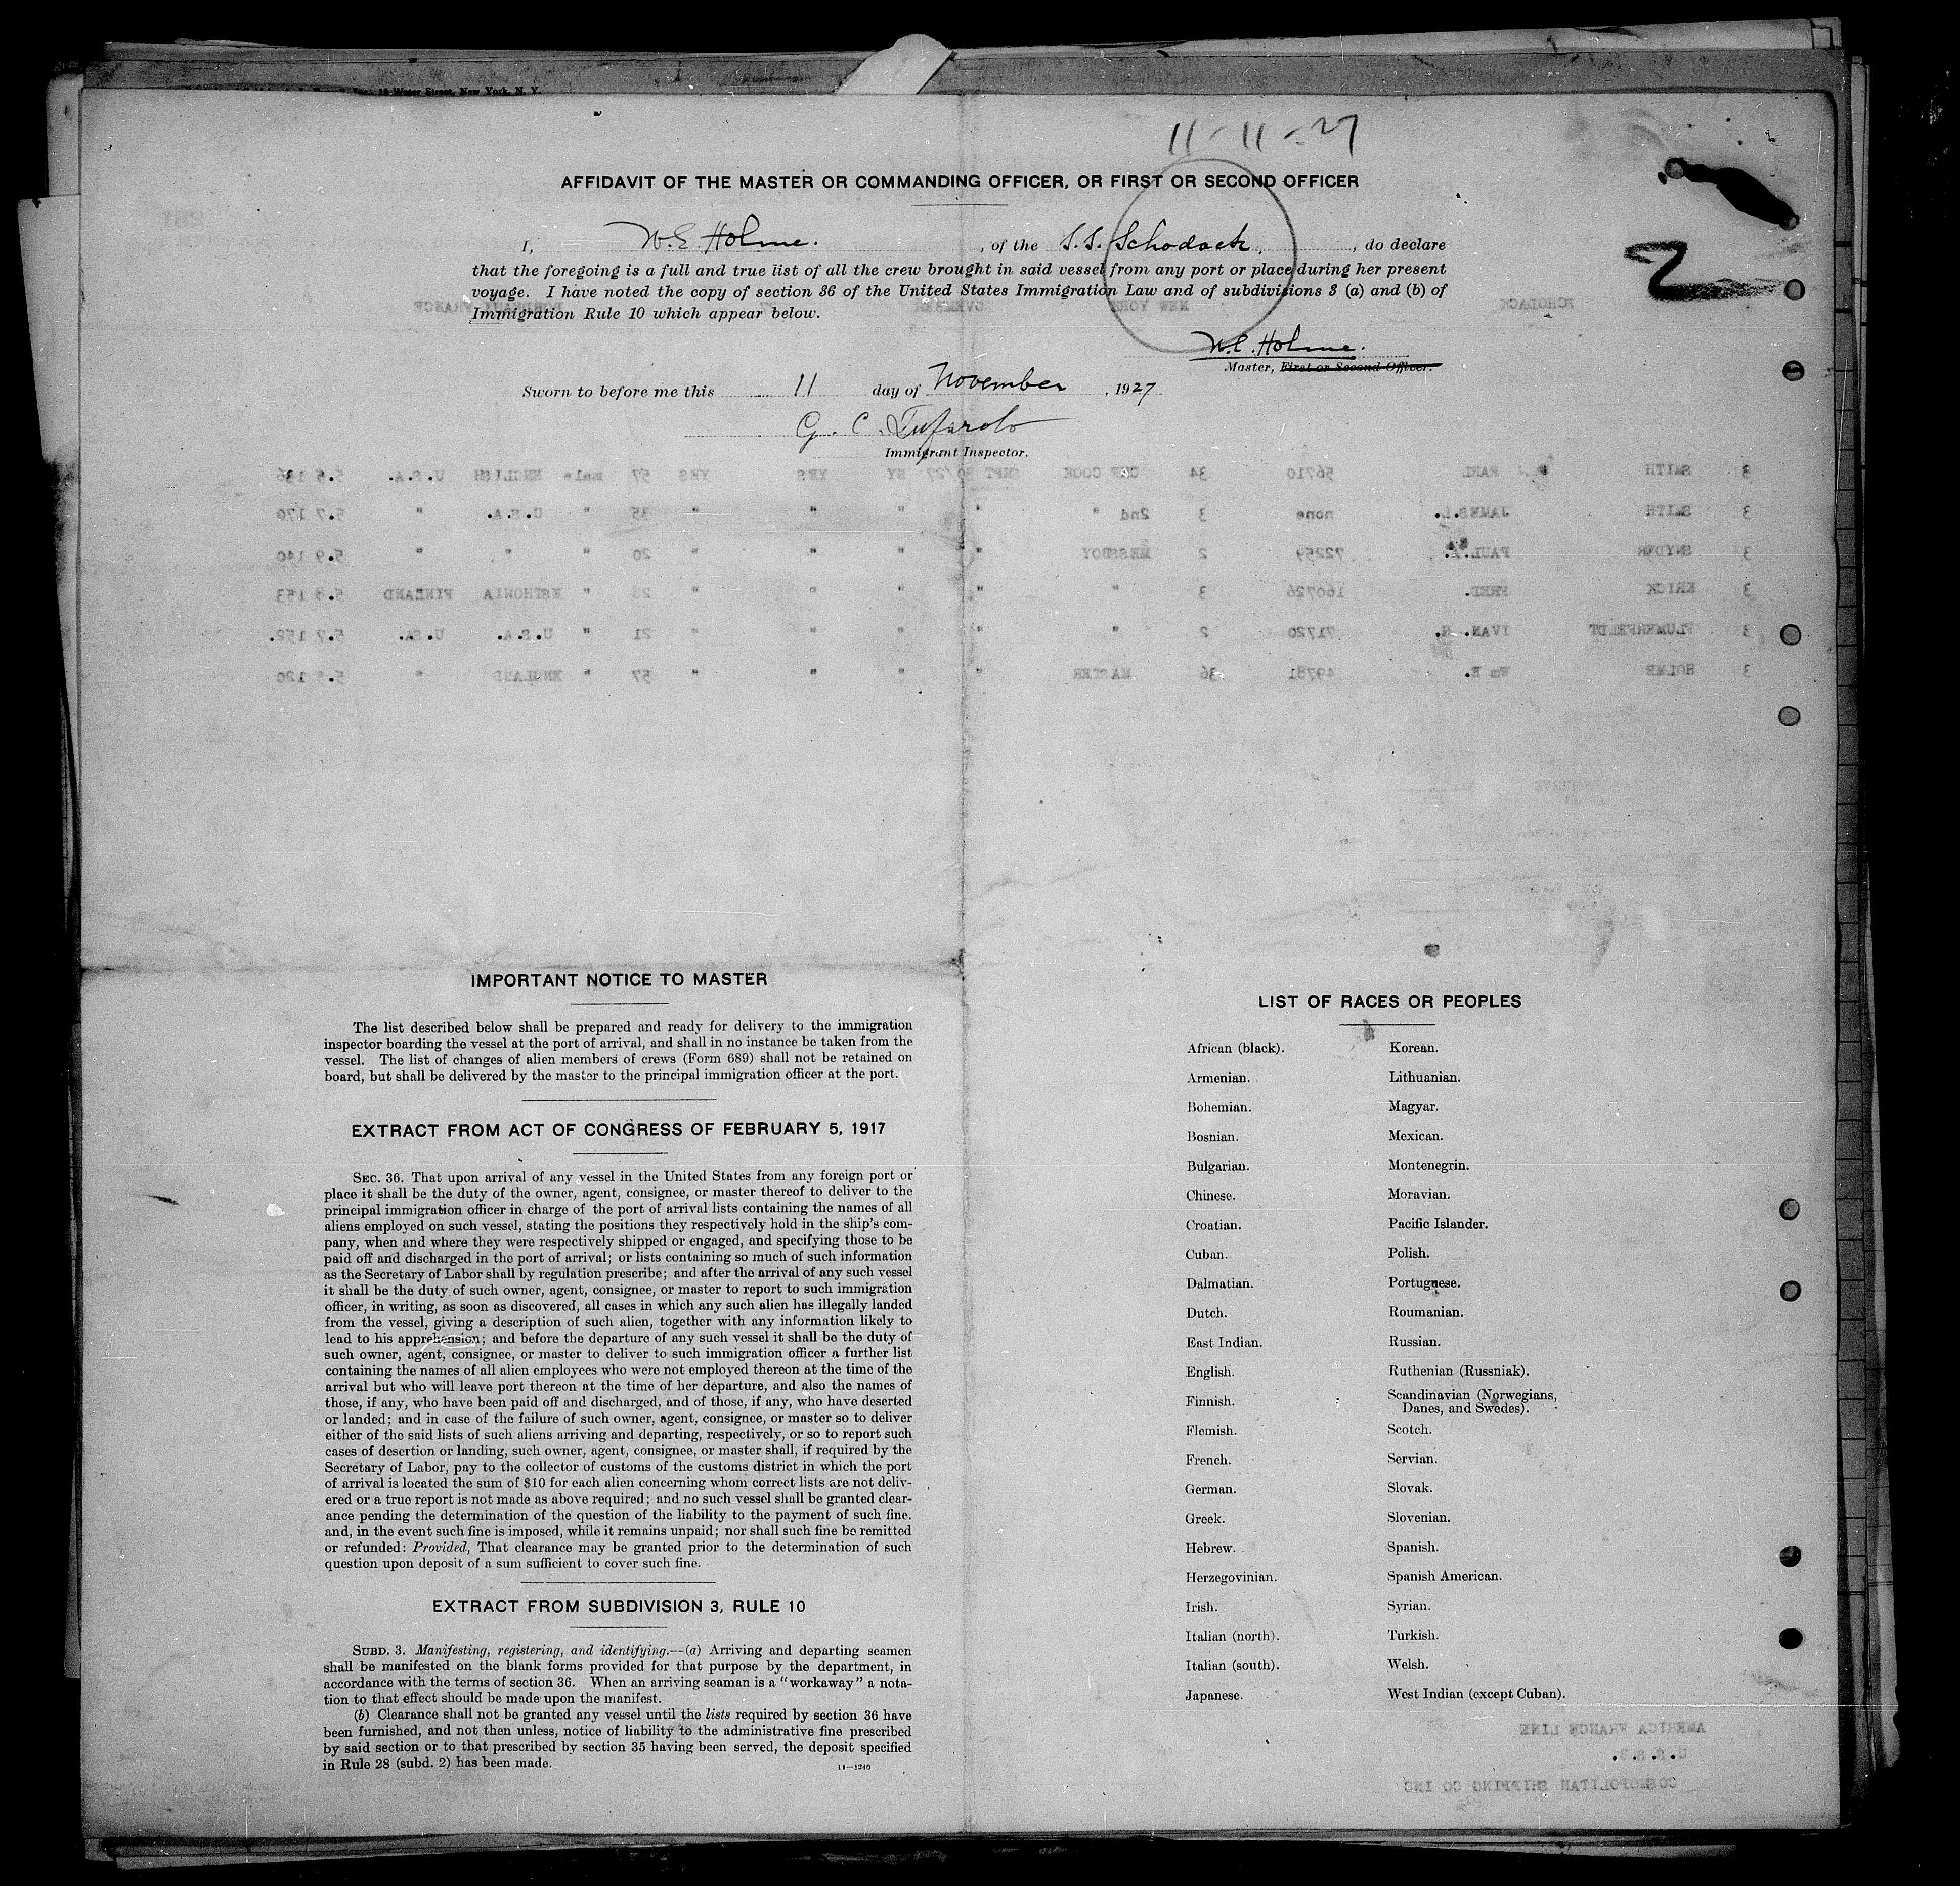 18 Water Street, New York, N. Y.
11-11-27
AFFIDAVIT OF THE MASTER OR COMMANDING OFFICER, OR FIRST OR SECOND OFFICER
I, W. E. Holme. , of the S.S. Schodack, , do declare
that the foregoing is a full and true list of all the crew brought in said vessel from any port or place during her present
voyage. I have noted the copy of section 36 of the United States Immigration Law and of subdivisions 3 (a) and (b) of
Immigration Rule 10 which appear below.
2
W. E. Holme.
Master, First or Second Officer.
Sworn to before me this 11 day of November , 1927
G. C.
Immigrant Inspector.
3 SMITH EARL 56710 34 COOK SEPT 30/27 NY YES YES 57 male ENGLISH U.S.A. 5.8 136
3 SMITH JAMES.L. none 3 2nd " " " " " 35 " U.S.A. " 5.7 170
3 SNYDER PAUL. 72259 2 MESSBOY " " " " 20 " " " 5.9 140
3 KRICK FRED. 160726 3 " " " " " 28 " ESTHONIA FINLAND 5.8 153
3 IVAN. 71720 2 " " " " " 21 " U.S.A. U.SA. 5.7 152.
3 HOLME Wm E. 49781 36 MASTER " " " " 57 " ENGLAND " 120
IMPORTANT NOTICE TO MASTER
The list described below shall be prepared and ready for delivery to the immigration
inspector boarding the vessel at the port of arrival, and shall in no instance be taken from the
vessel. The list of changes of alien members of crews (Form 689) shall not be retained on
board, but shall be delivered by the master to the principal immigration officer at the port.
EXTRACT FROM ACT OF CONGRESS OF FEBRUARY 5, 1917
SEC. 36. That upon arrival of any vessel in the United States from any foreign port or
place it shall be the duty of the owner, agent, consignee, or master thereof to deliver to the
principal immigration officer in charge of the port of arrival lists containing the names of all
aliens employed on such vessel, stating the positions they respectively hold in the ship's com-
pany, when and where they were respectively shipped or engaged, and specifying those to be
paid off and discharged in the port of arrival; or lists containing so much of such information
as the Secretary of Labor shall by regulation prescribe; and after the arrival of any such vessel
it shall be the duty of such owner, agent, consignee, or master to report to such immigration
officer, in writing, as soon as discovered, all cases in which any such alien has illegally landed
from the vessel, giving a description of such alien, together with any information likely to
lead to his apprehension; and before the departure of any such vessel it shall be the duty of
such owner, agent, consignee, or master to deliver to such immigration officer a further list
containing the names of all alien employees who were not employed thereon at the time of the
arrival but who will leave port thereon at the time of her departure, and also the names of
those, if any, who have been paid off and discharged, and of those, if any, who have deserted
or landed; and in case of the failure of such owner, agent, consignee, or master so to deliver
either of the said lists of such aliens arriving and departing, respectively, or so to report such
cases of desertion or landing, such owner, agent, consignee, or master shall, if required by the
Secretary of Labor, pay to the collector of customs of the customs district in which the port
of arrival is located the sum of $10 for each alien concerning whom correct lists are not deliv-
ered or a true report is not made as above required; and no such vessel shall be granted clear-
ance pending the determination of the question of the liability to the payment of such fine.
and, in the event such fine is imposed, while it remains unpaid; nor shall such fine be remitted
or refunded: Provided, That clearance may be granted prior to the determination of such
question upon deposit of a sum sufficient to cover such fine.
EXTRACT FROM SUBDIVISION 3, RULE 10
SUBD. 3. Manifesting, registering, and identifying.—(a) Arriving and departing seamen
shall be manifested on the blank forms provided for that purpose by the department, in
accordance with the terms of section 36. When an arriving seaman is a "workaway" a nota-
tion to that effect should be made upon the manifest.
(b) Clearance shall not be granted any vessel until the lists required by section 36 have
been furnished, and not then unless, notice of liability to the administrative fine prescribed
by said section or to that prescribed by section 35 having been served, the deposit specified
in Rule 28 (subd. 2) has been made.
11—1240
LIST OF RACES OR PEOPLES
African (black). Korean.
Armenian. Lithuanian.
Bohemian. Magyar.
Bosnian. Mexican.
Bulgarian. Montenegrin.
Chinese. Moravian.
Croatian. Pacific Islander.
Cuban. Polish.
Dalmatian. Portuguese.
Dutch. Roumanian.
East Indian. Russian.
English. Ruthenian (Russniak).
Finnish. Scandinavian (Norwegians,
Danes, and Swedes).
Flemish. Scotch.
French. Servian.
German. Slovak.
Greek. Slovenian.
Hebrew. Spanish.
Herzegovinian. Spanish American.
Irish. Syrian.
Italian (north). Turkish.
Italian (south). Welsh.
Japanese. West Indian (except Cuban).
AMERICA FRANCE LINE
COSMOPOLITAN SHIPPING CO INC